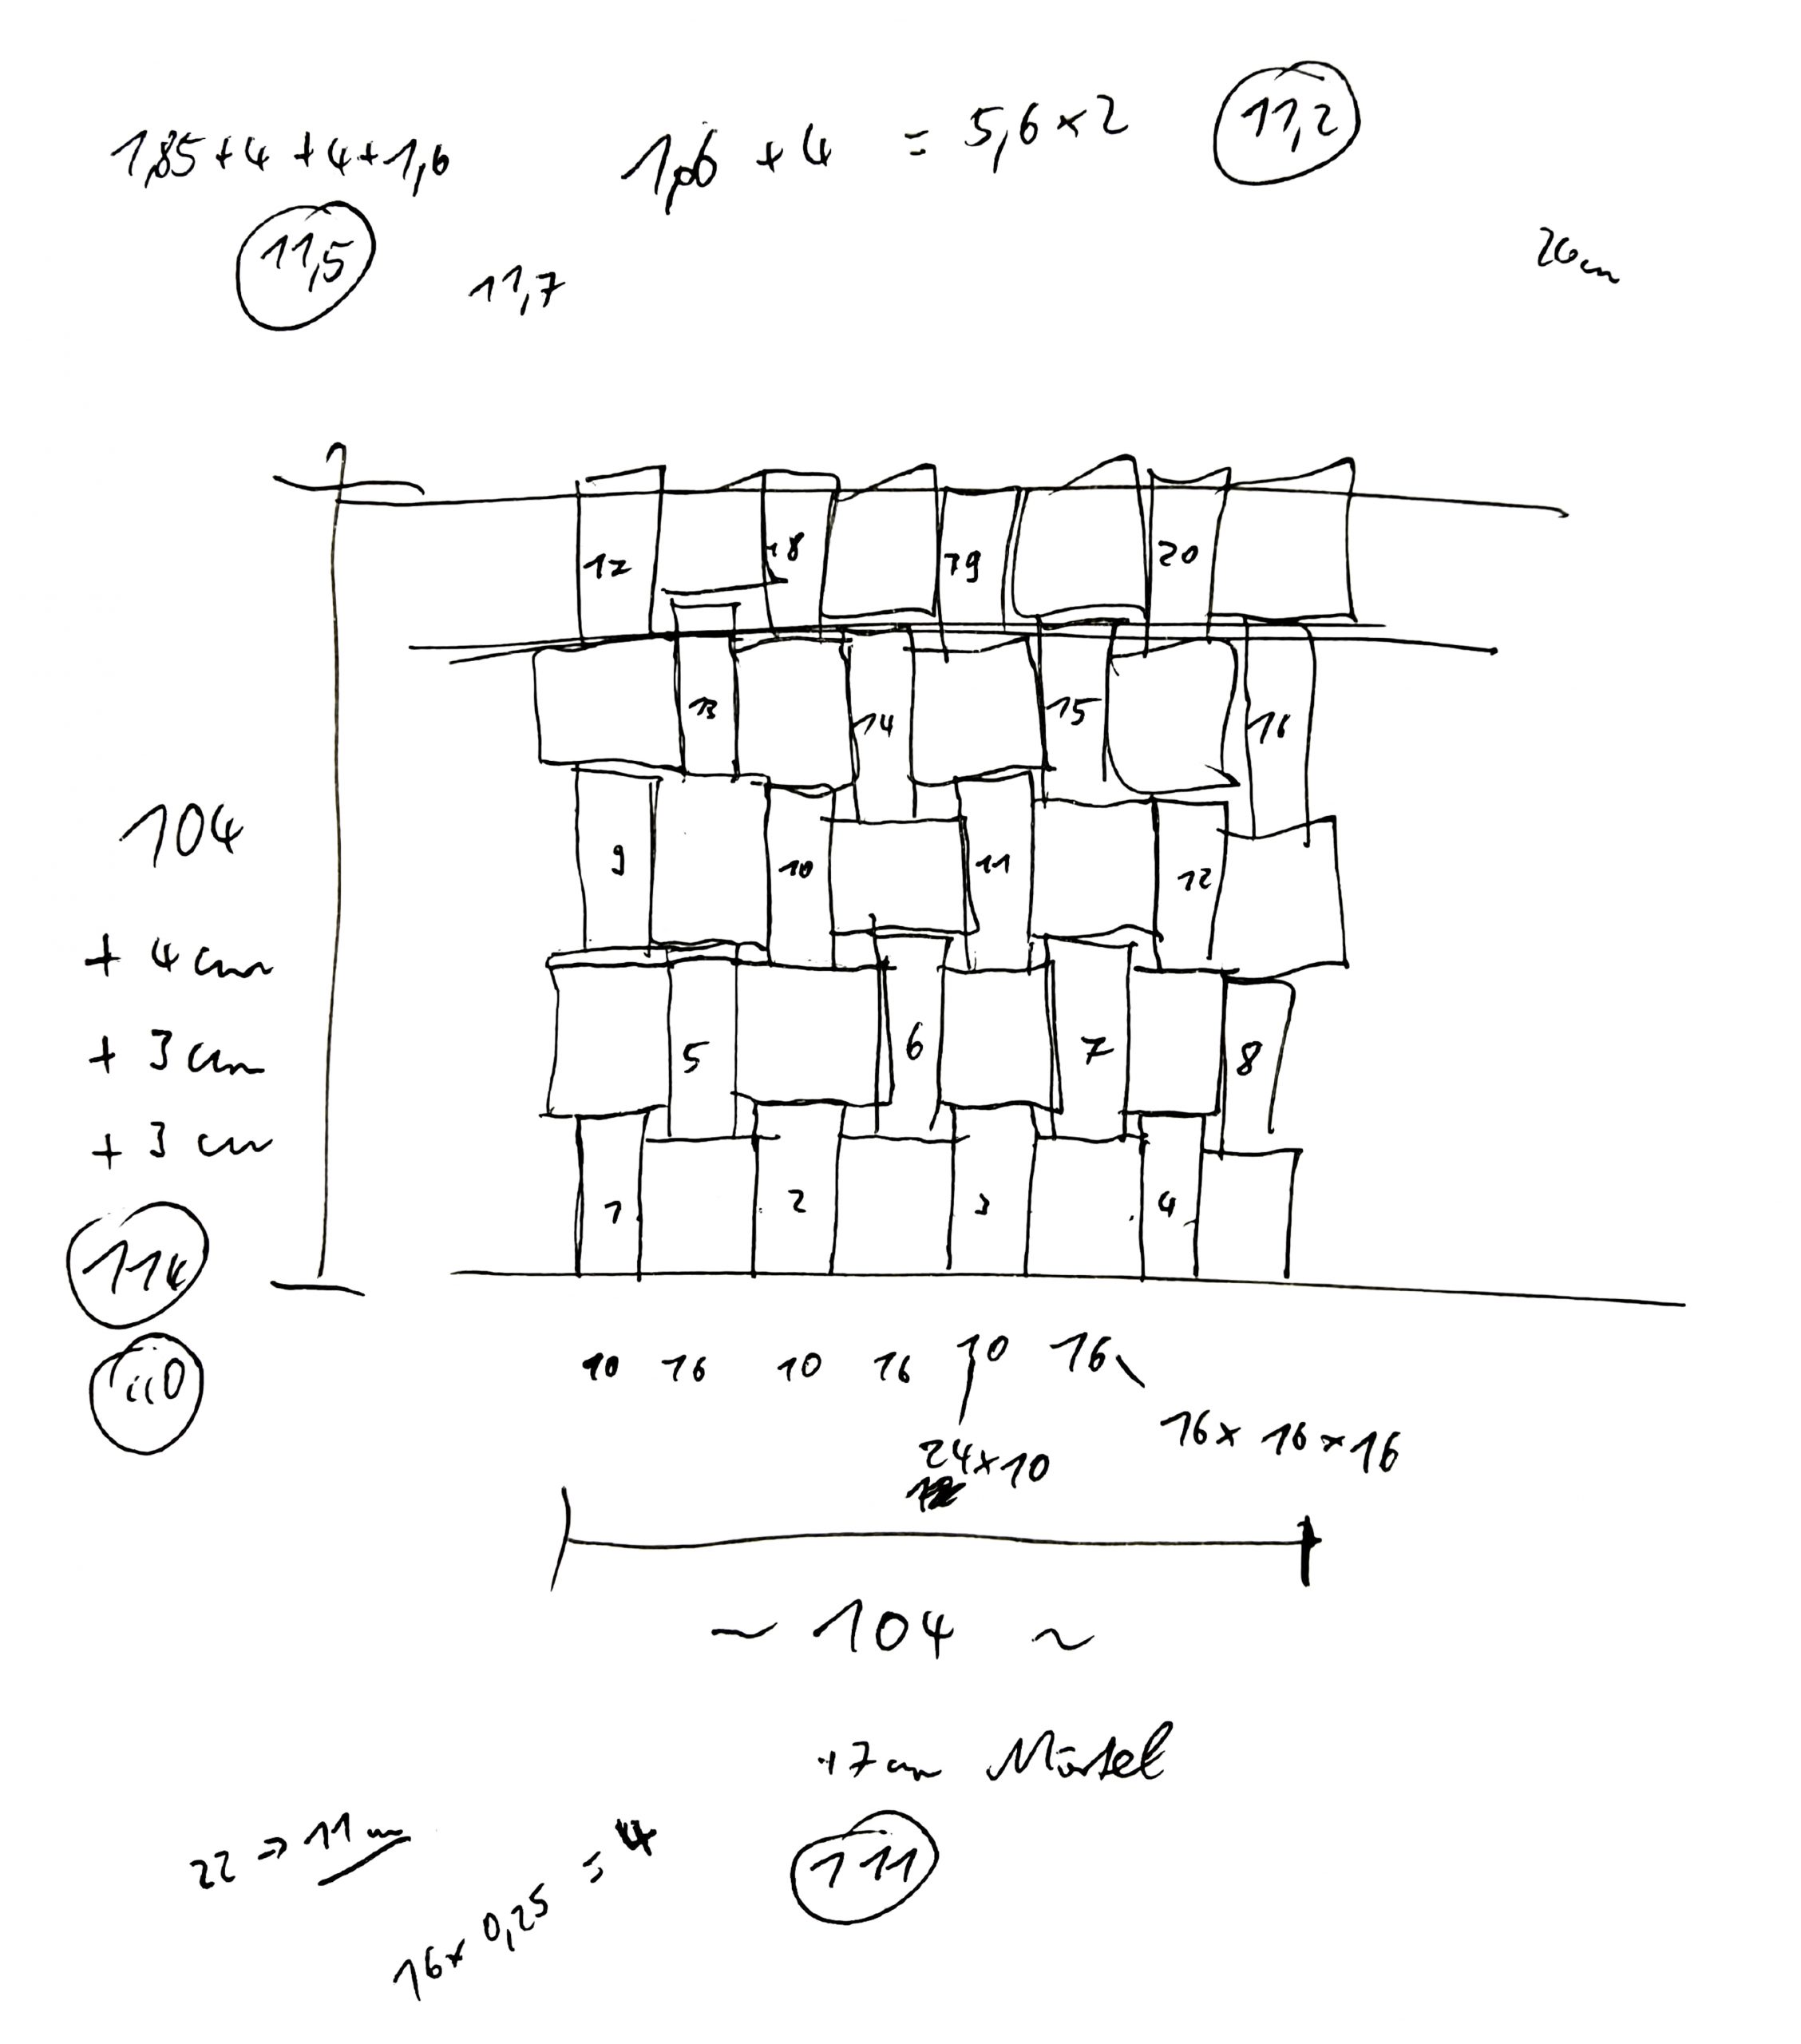 1,85+4+4+1,6
1,6 + 4 = 5,6 x 2
11,2
11,5
11,7
20cm
12 18 19 20
13 14 15 16
9 10 11 12
5 6 7 8
1 2 3 4
104
+ 4cm
+ 3cm
+ 3cm
114
110
10 16 10 16 10 16
24x10
16x16x16
~ 104 ~
+7cm Mörtel
111
22 => 11m
16x0,25 = 4